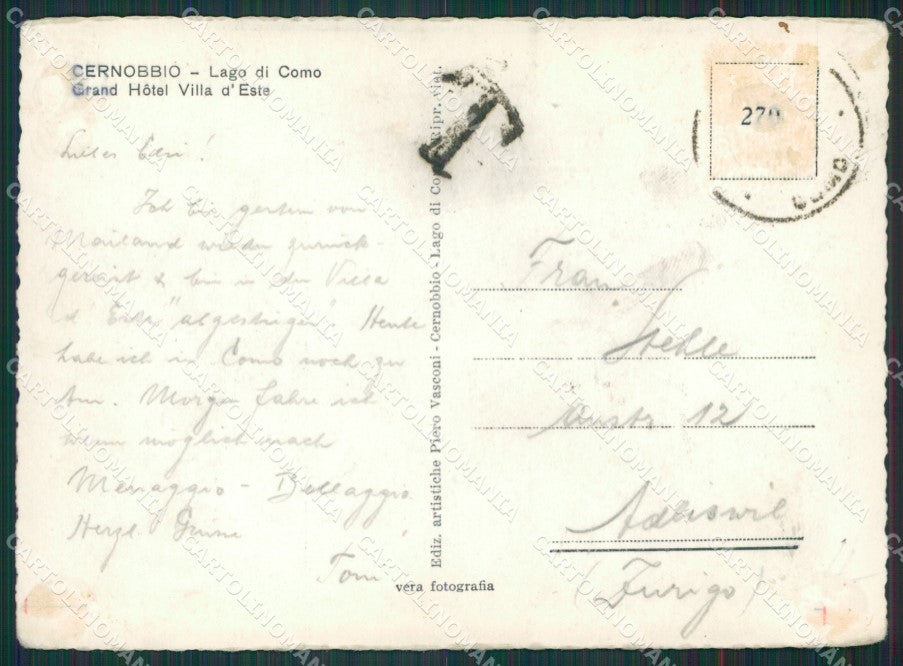 CERNOBBIO – Lago di Como
Grand Hôtel Villa d'Este
Liebes !
Ich bin gestern von
Mailand wieder zurück-
gereist & bin in der Villa
d'Este" abgestiegen Heute
habe ich in Como noch zu
tun. Morgen fahre ich
wenn möglich nach
Menaggio - Bellaggio.
Herzl. Grüsse
Toni
Ediz. artistiche Piero Vasconi - Cernobbio - Lago di Ripr. viet.
vera fotografia
T
270
COMO
Frau
Stehle
12
Adliswil
(Zurigo)
CARTOLINOMANIA